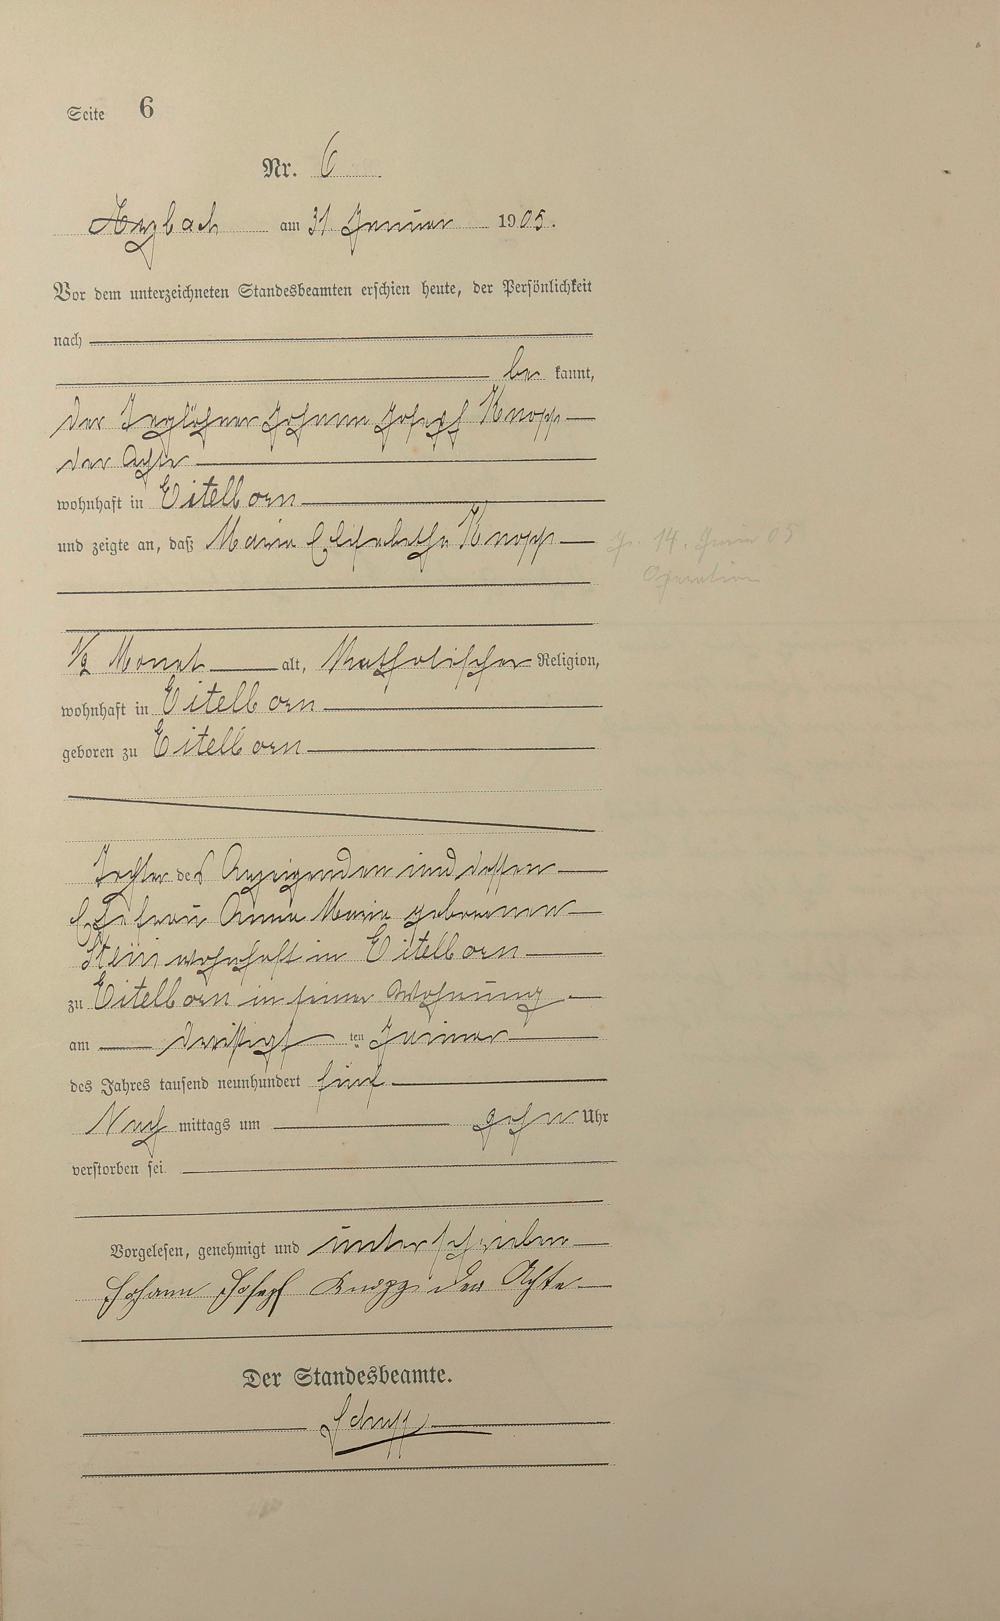 Seite 6
Nr. 6
Arzbach am 31 Januar 1905.
Vor dem unterzeichneten Standesbeamten erschien heute, der Persönlichkeit
nach
be kannt,
der Taglöhner Johann Josef Knopp
der Achte
wohnhaft in Eitelborn
und zeigte an, daß Maria Elisabetha Knopp
14. 05
Operation
1/2 Monat alt, Katholischer Religion,
wohnhaft in Eitelborn
geboren zu Eitelborn
Tochter des Anzeigenden und dessen
Ehefrau Anna Maria geborenen
Stein wohnhaft in Eitelborn
zu Eitelborn in seiner Wohnung
am dreißigsten Januar
des Jahres tausend neunhundert fünf
Nach mittags um zehn Uhr
verstorben sei
Vorgelesen, genehmigt und unterschrieben
Johann Josepf Knopp der Achte
Der Standesbeamte.